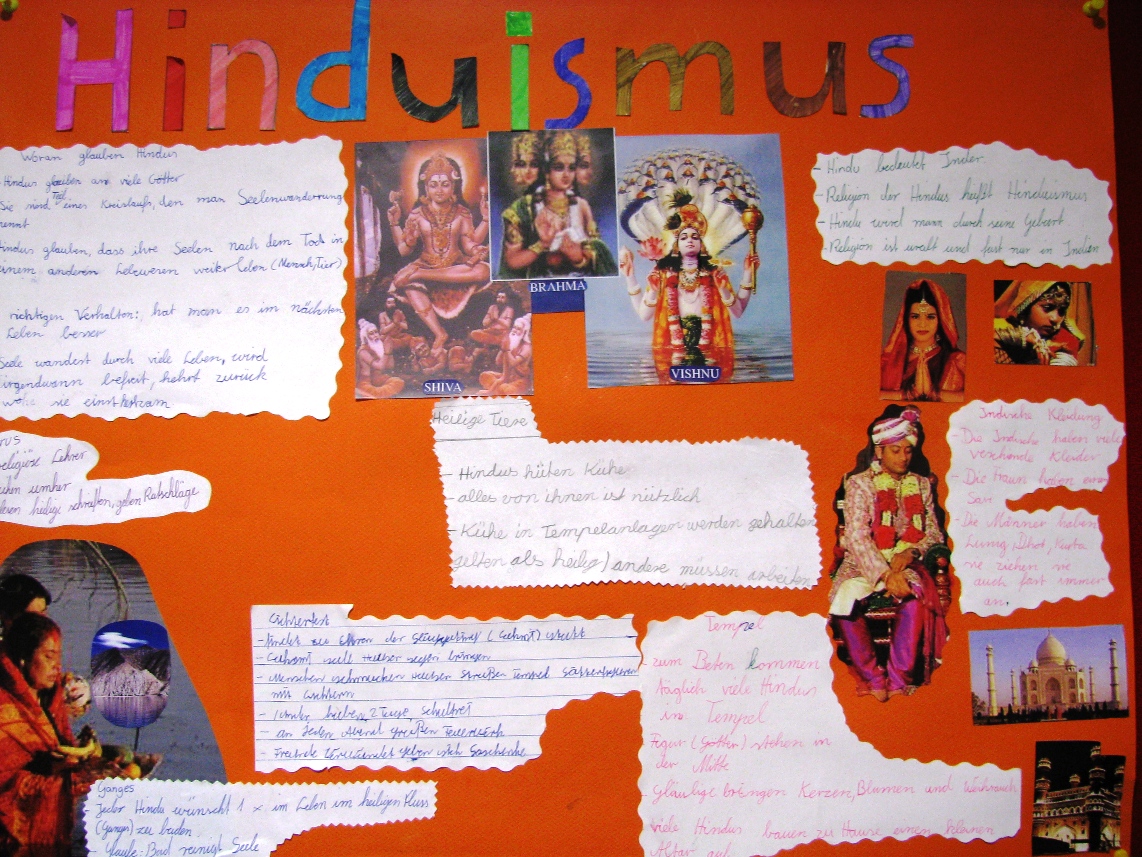 Hinduismus
Woran glauben Hindus
Hindus glauben an viele Götter
Sie sind Teil eines Kreislaufs, den man Seelenwanderung
nennt
Hindus glauben, dass ihre Seelen nach dem Tod in
einem anderen Lebewesen weiter leben (Mensch, Tier)
richtigen Verhalten:, hat man es im nächsten
Leben besser
Seele wandert durch viele Leben, wird
irgendwann befreit, kehrt zurück
sie einst
SHIVA
BRAHMA
VISHNU
- Hindu bedeutet Inder.
- Religion der Hindus heißt Hinduismus
- Hindu wird man durch seine Geburt
- Religion ist uralt und fast nur in Indien
religiöse Lehrer
umher
heilige schriften, geben Ratschläge
Heilige Tiere
- Hindus hüten Kühe
- alles von ihnen ist nützlich
- Kühe in Tempelanlagen werden gehalten
gelten als heilig / andere müssen arbeiten
Indische Kleidung
- Die haben viele
Kleider
- Die haben einen
Sari
- Die Männer haben
Lungi, Dhoti, Kurta
sie ziehen sie
auch fast immer
an.
- zu Ehren der statt
- soll bringen
- Menschen schmücken Häuser Straßen Tempel
mit Lichtern
- Kinder haben 2 Tage schulfrei
- an jedem Abend großes Feuerwerk
- Freunde Verwandte geben sich Geschenke
Tempel
- zum Beten kommen
täglich viele Hindus
in Tempel
Figur (Götter) stehen in
der Mitte
- Gläubige bringen Kerzen, Blumen und Weihrauch
viele Hindus bauen zu Hause einen kleinen
Altar auf.
Ganges
- Jeder Hindu wünscht 1 x im Leben im heiligen Fluss
(Ganges) zu baden.
- Glaube: Bad reinigt Seele